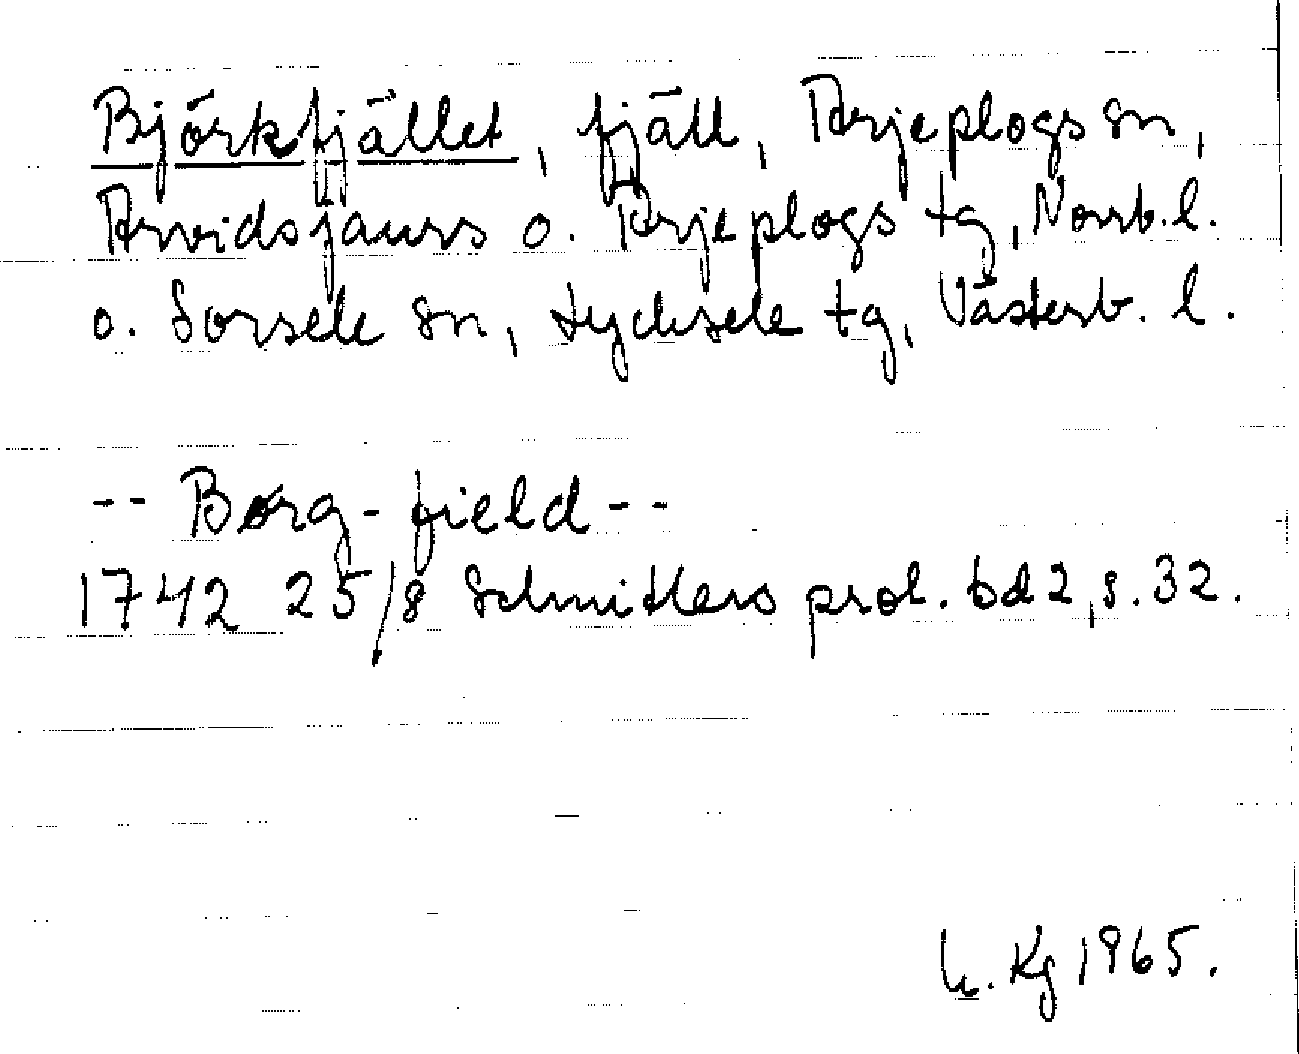 Björkfjället, fjäll, Arjeplogs sn,
Arvidsjaurs o. Arjeplogs tg, Norrb. l.
o. Sorsele sn, Lycksele tg, Västerb. l.
-- Børg-field --
1742 25/8 Schnitlers prot. bd 2, s. 32.
Kg 1965.